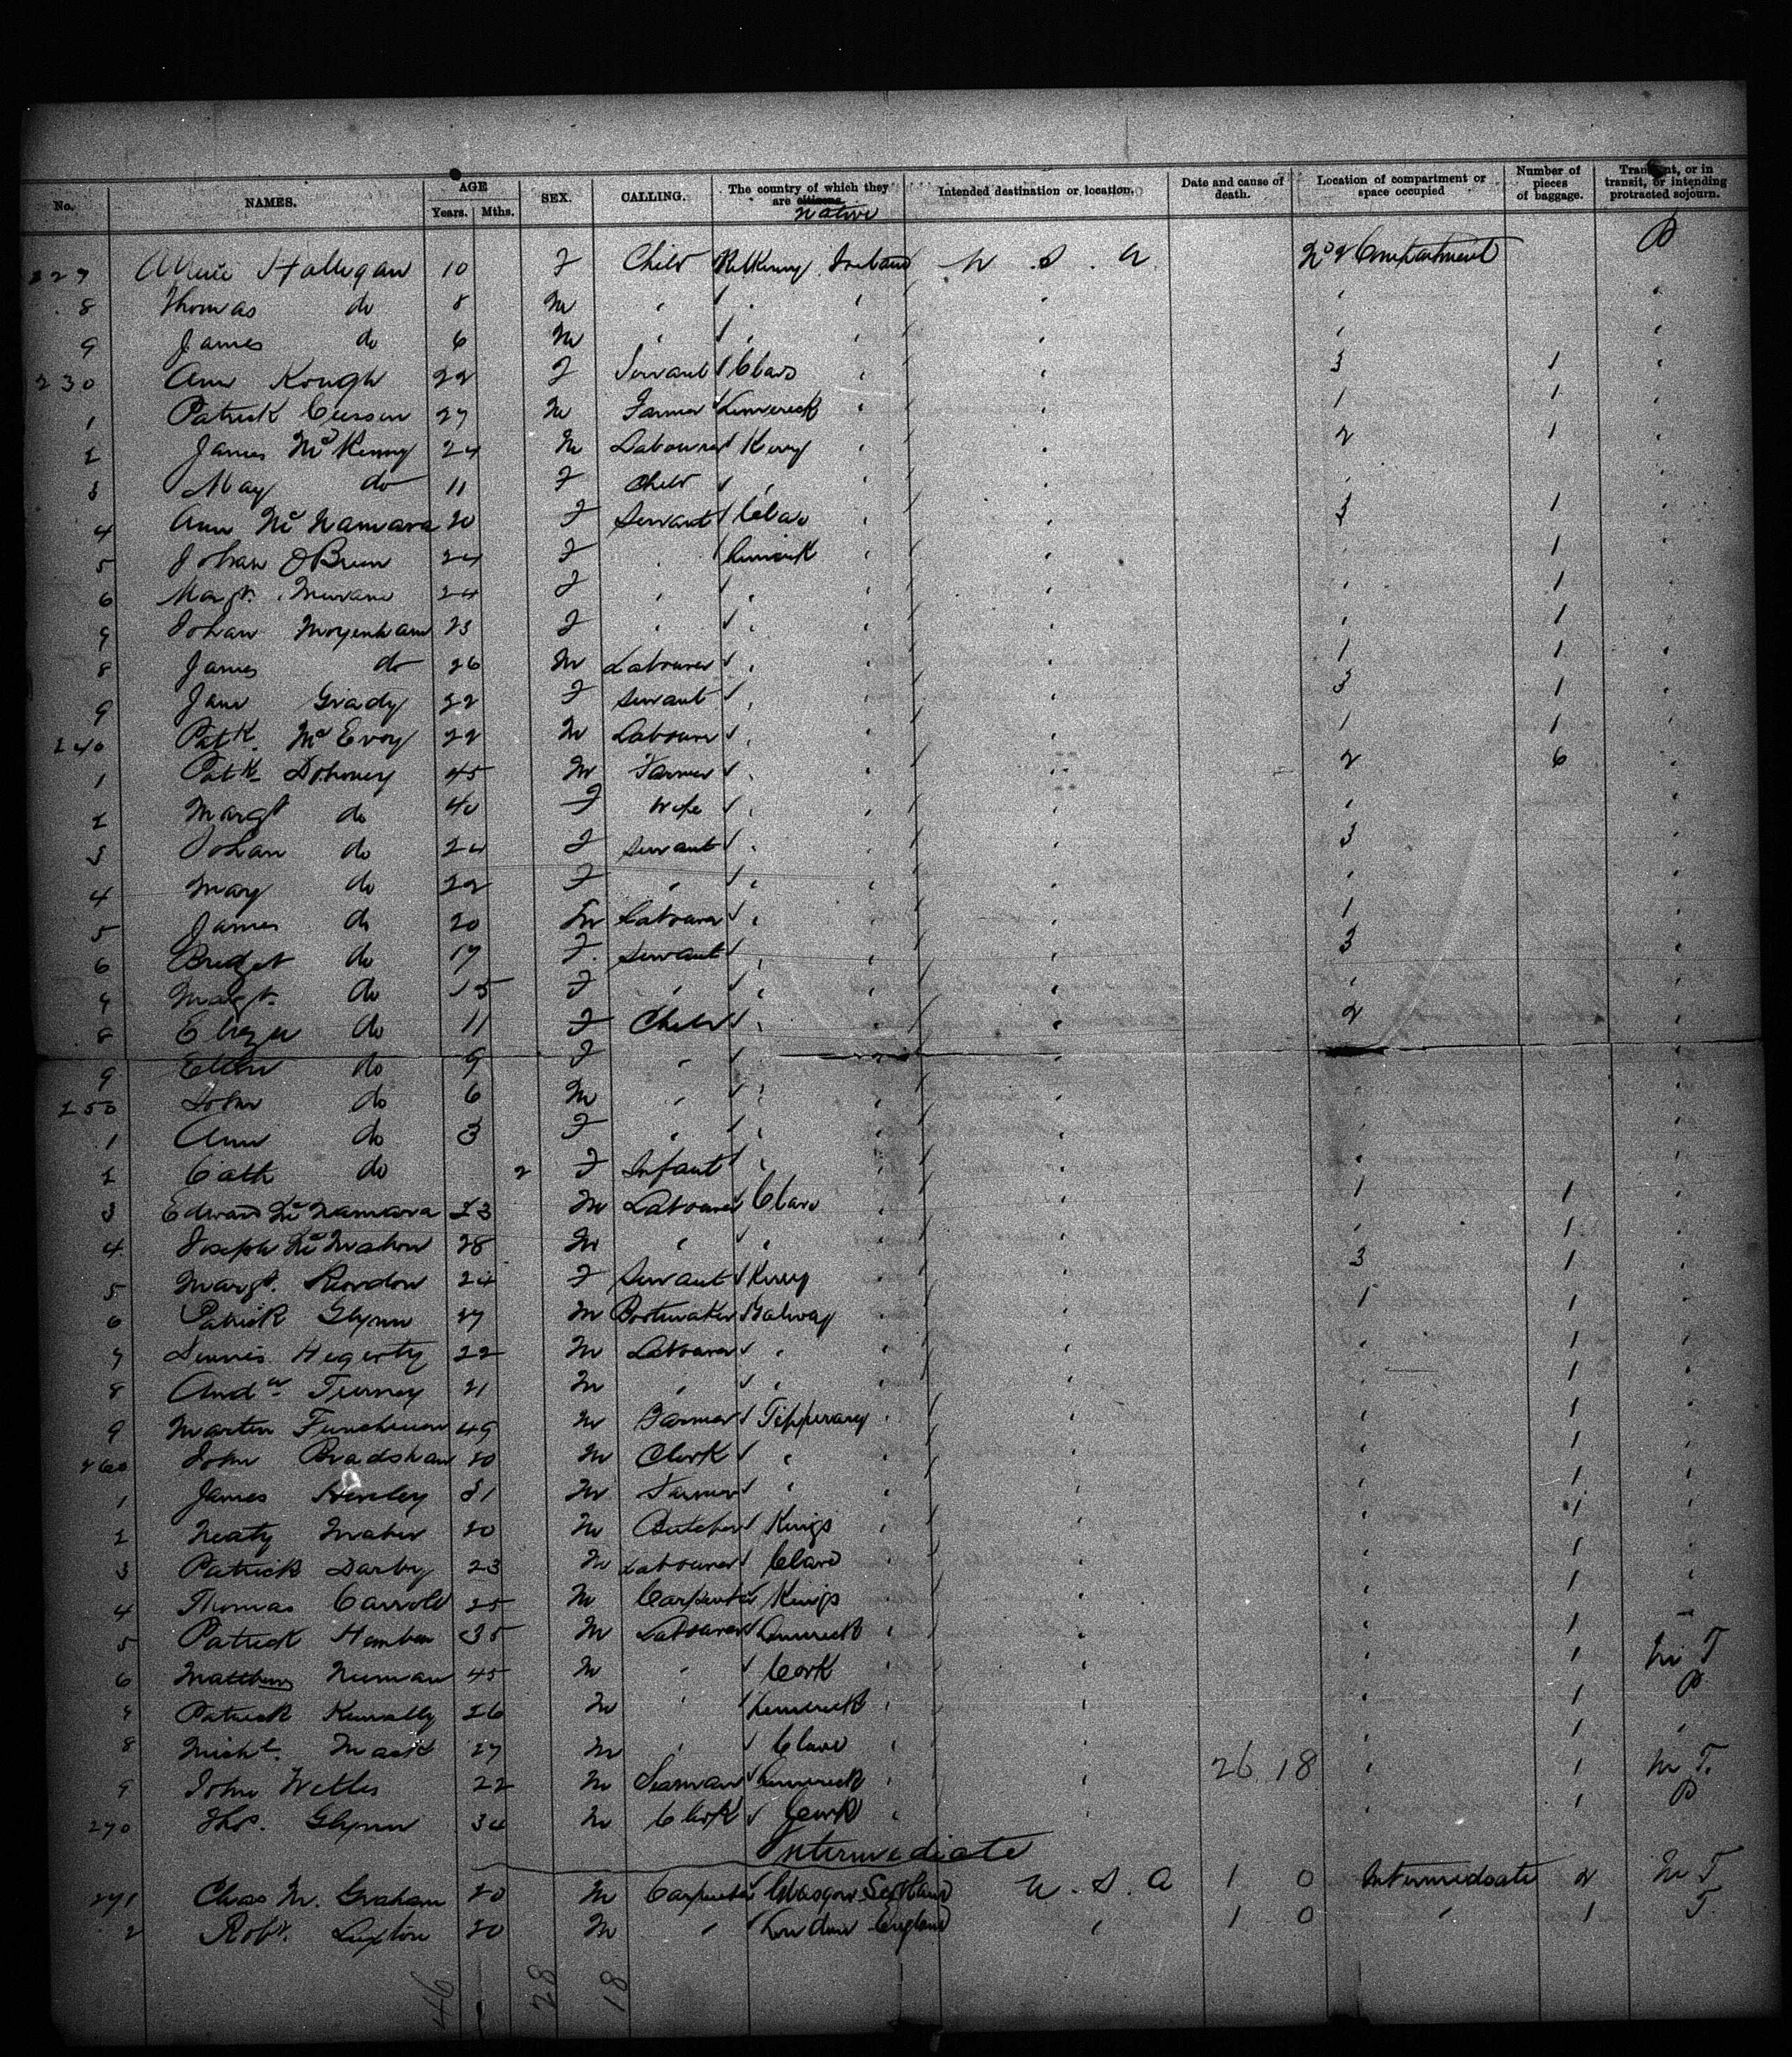 No. NAMES. AGE Years. Mths. SEX. CALLING. The country of which they are citizens. native Intended destination or location. Date and cause of death. Location of compartment or space occupied Number of pieces of baggage. Transient, or in transit, or intending protracted sojourn.
227 Halligan 10 F Child Kilkenny Ireland U.S.A No 2 Compartment P
8 Thomas do 8 M " " " " " "
9 James do 6 M " " " " " "
230 Ann Keough 22 F Servant Clare " " 3 1 "
1 Patrick Cussen 27 M Farmer Limerick " " 1 1 "
2 James McKenny 24 M Labourer Kerry " " 2 1 "
3 May do 11 F Child " " " " "
4 Ann McNamara 20 F Servant Clare " " 3 1 "
5 Johan O'Brien 24 F " Limerick " " " 1 "
6 Margt. 24 F " " " " " 1 "
7 Johan Moyenham 23 F " " " " " 1 "
8 James do 26 M Labourer " " " 1 1 "
9 Jane Grady 22 F Servant " " " 3 1 "
240 Patk. McEvoy 22 M Labourer " " " 1 1 "
1 Patk Dohoney 45 M Farmer " " " 2 6 "
2 Margt do 40 F Wife " " " " "
3 Johan do 24 F Servant " " " 3 "
4 Mary do 22 F " " " " " "
5 James do 20 M Labourer " " " 1 "
6 Bridget do 17 F. Servant " " " 3 "
7 Margt. do 15 F " " " " " "
8 Eliza do 11 F Child " " " 2 "
9 Ellen do 9 F " " " "
250 John do 6 M " " " " "
1 Ann do 3 F " " " " " "
2 Cath do 2 F Infant " " " " "
3 Edward McNamara 23 M Labourer Clare " " 1 1 "
4 Joseph McMahon 28 M " " " " " 1 "
5 Margt. Riordon 24 F Servant Kerry " " 3 1 "
6 Patrick Glynn 27 M Bootmaker Galway " " 1 1 "
7 Dennis Hegerty 22 M Labourer " " " " 1 "
8 Andw. Tierney 21 M " " " " " 1 "
9 Martin 49 M Farmer Tipperary " " " 1 "
260 John Bradshaw 20 M Clerk " " " " 1 "
1 James Henley 31 M Farmer " " " " 1 "
2 Maher 20 M Butcher Kings " " " 1 "
3 Patrick Darby 23 M Labourer Clare " " " 1 "
4 Thomas Carroll 25 M Carpenter Kings " " " 1 "
5 Patrick 35 M Labourer Limerick " " " 1 "
6 Matthew 45 M " Cork " " 1 M T
7 Patrick Kennally 26 M " Limerick " " " 1 P
8 Michl. Mack 27 M " Clare " " " 1 "
9 John 22 M Seaman Limerick " " 26 18 " 1 M T.
270 Thos. Glynn 34 M Clerk Cork " " " 1 P
Intermediate
271 Chas M. Graham 20 M Carpenter Glasgow Scotland U.S.A 1 0 Intermediate 2 M T
2 Robt. Luxton 20 M " London England " 1 0 " 1 T.
46 28 18